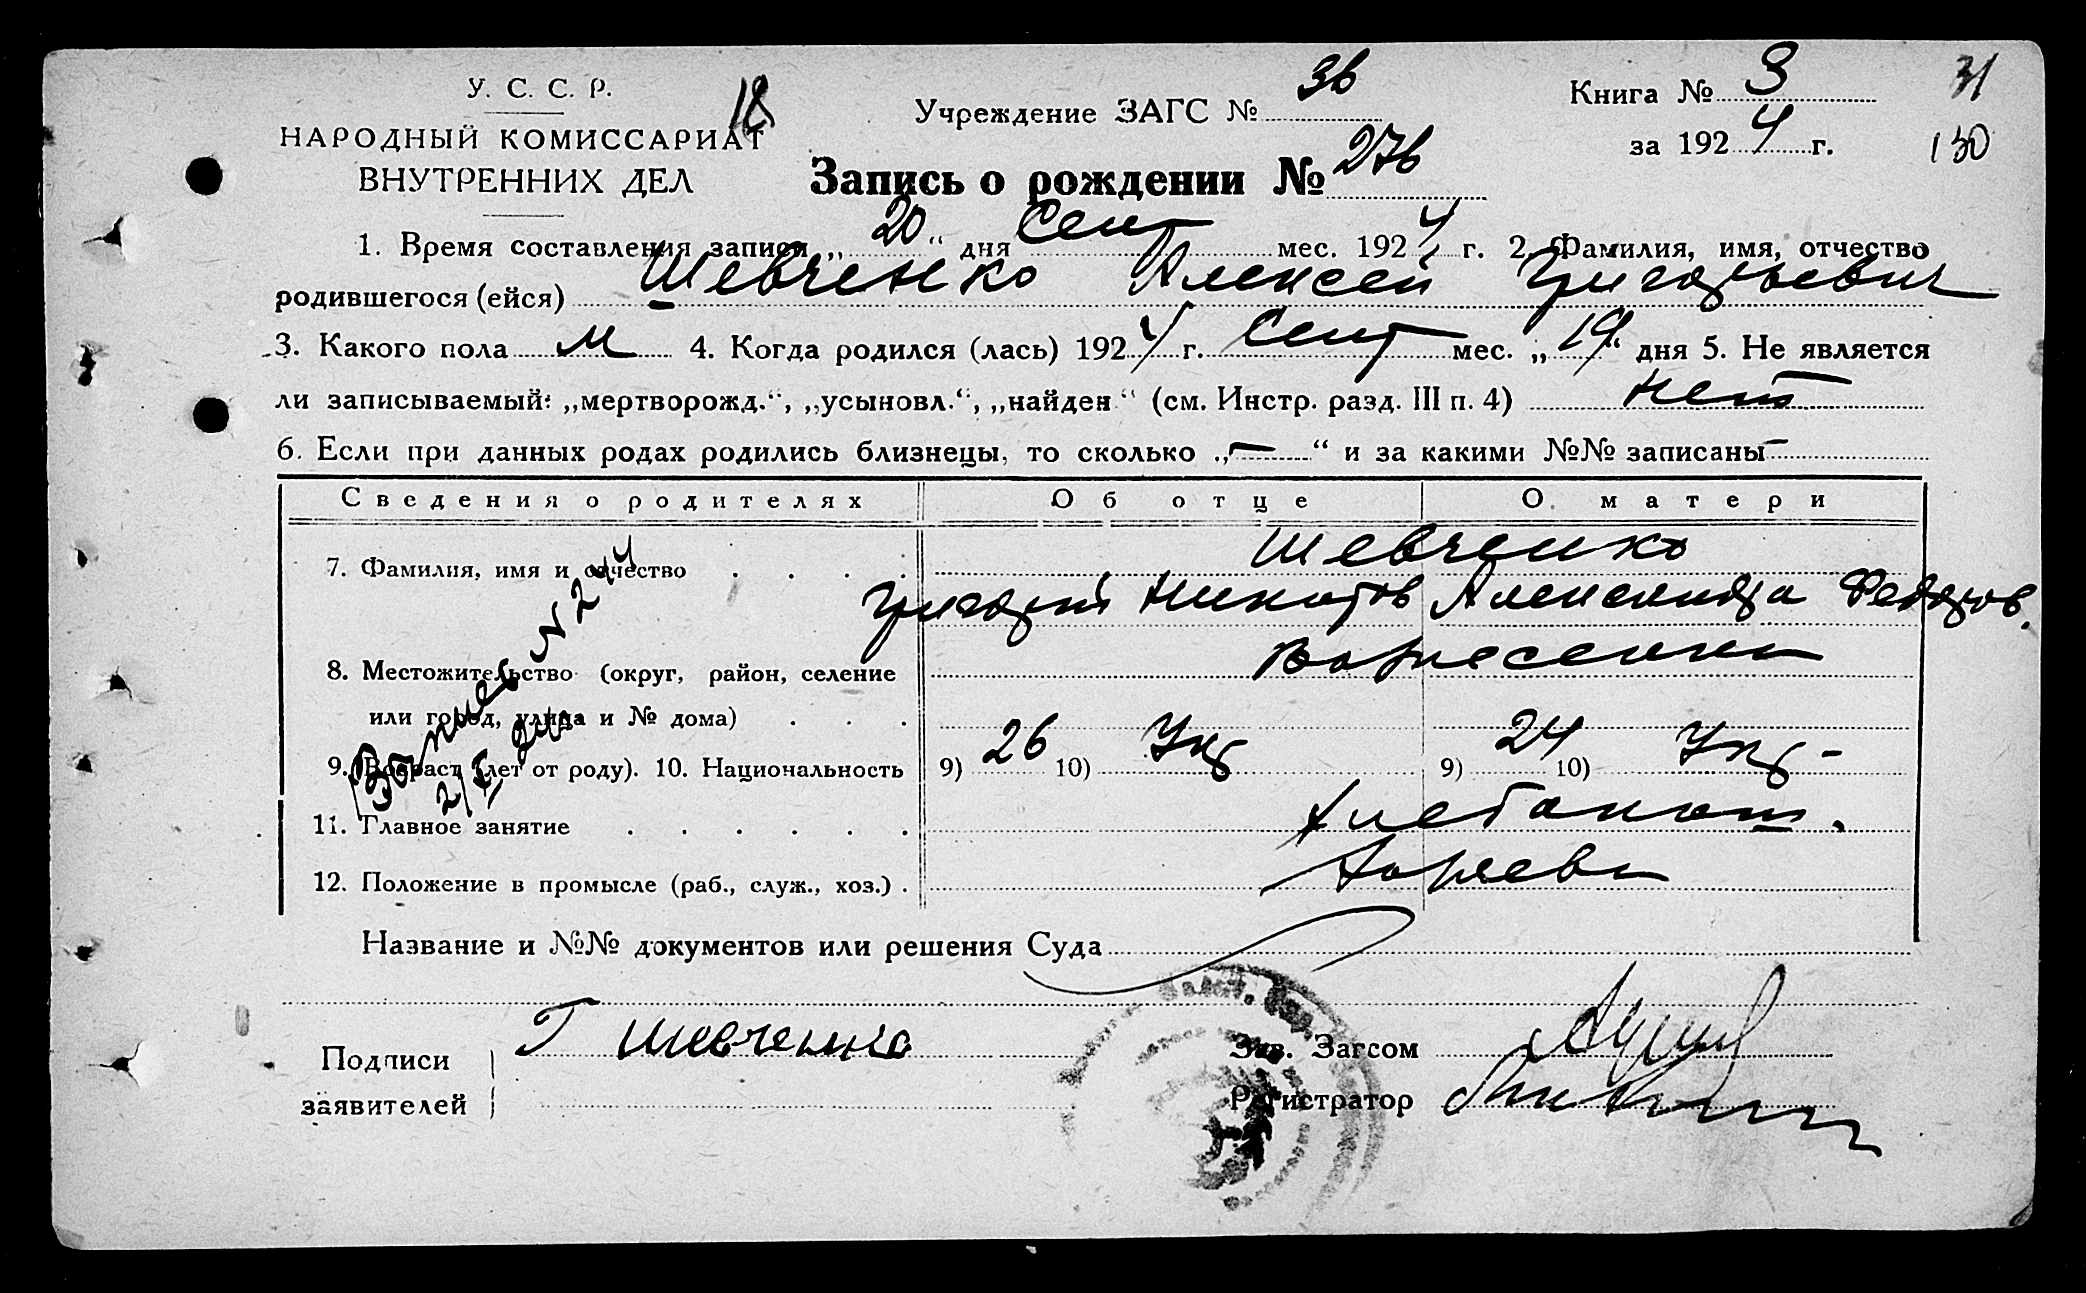 У. С. С. Р.
18
НАРОДНЫЙ КОМИССАРИАТ
ВНУТРЕННИХ ДЕЛ
Учреждение ЗАГС № 36
Книга № 3
31
за 1924 г.
130
Запись о рождении № 276
1. Время составления записи „20“ дня Сент мес. 1924 г. 2. Фамилия, имя, отчество
родившегося (ейся) Шевченко Алексей Григорьевич
3. Какого пола м 4. Когда родился (лась) 1924 г. Сент мес. „19“ дня 5. Не является
ли записываемый: „мертворожд.“, „усыновл.“, „найден“ (см. Инстр. разд. III п. 4) нет
6. Если при данных родах родились близнецы, то сколько „—“ и за какими №№ записаны —
Сведения о родителях Об отце О матери
7. Фамилия, имя и отчество Шевченко
Григорий Никитов Александра Федоров.
8. Местожительство (округ, район, селение Вознесенка
или город, улица и № дома)
9. Возраст (лет от роду). 10. Национальность 9) 26 10) Укр 9) 24 10) Укр-
11. Главное занятие Хлебопаш.
12. Положение в промысле (раб., служ., хоз.) Хозяева
№ 244
Название и №№ документов или решения Суда
Подписи заявителей Г Шевченко
Зав. Загсом
Регистратор